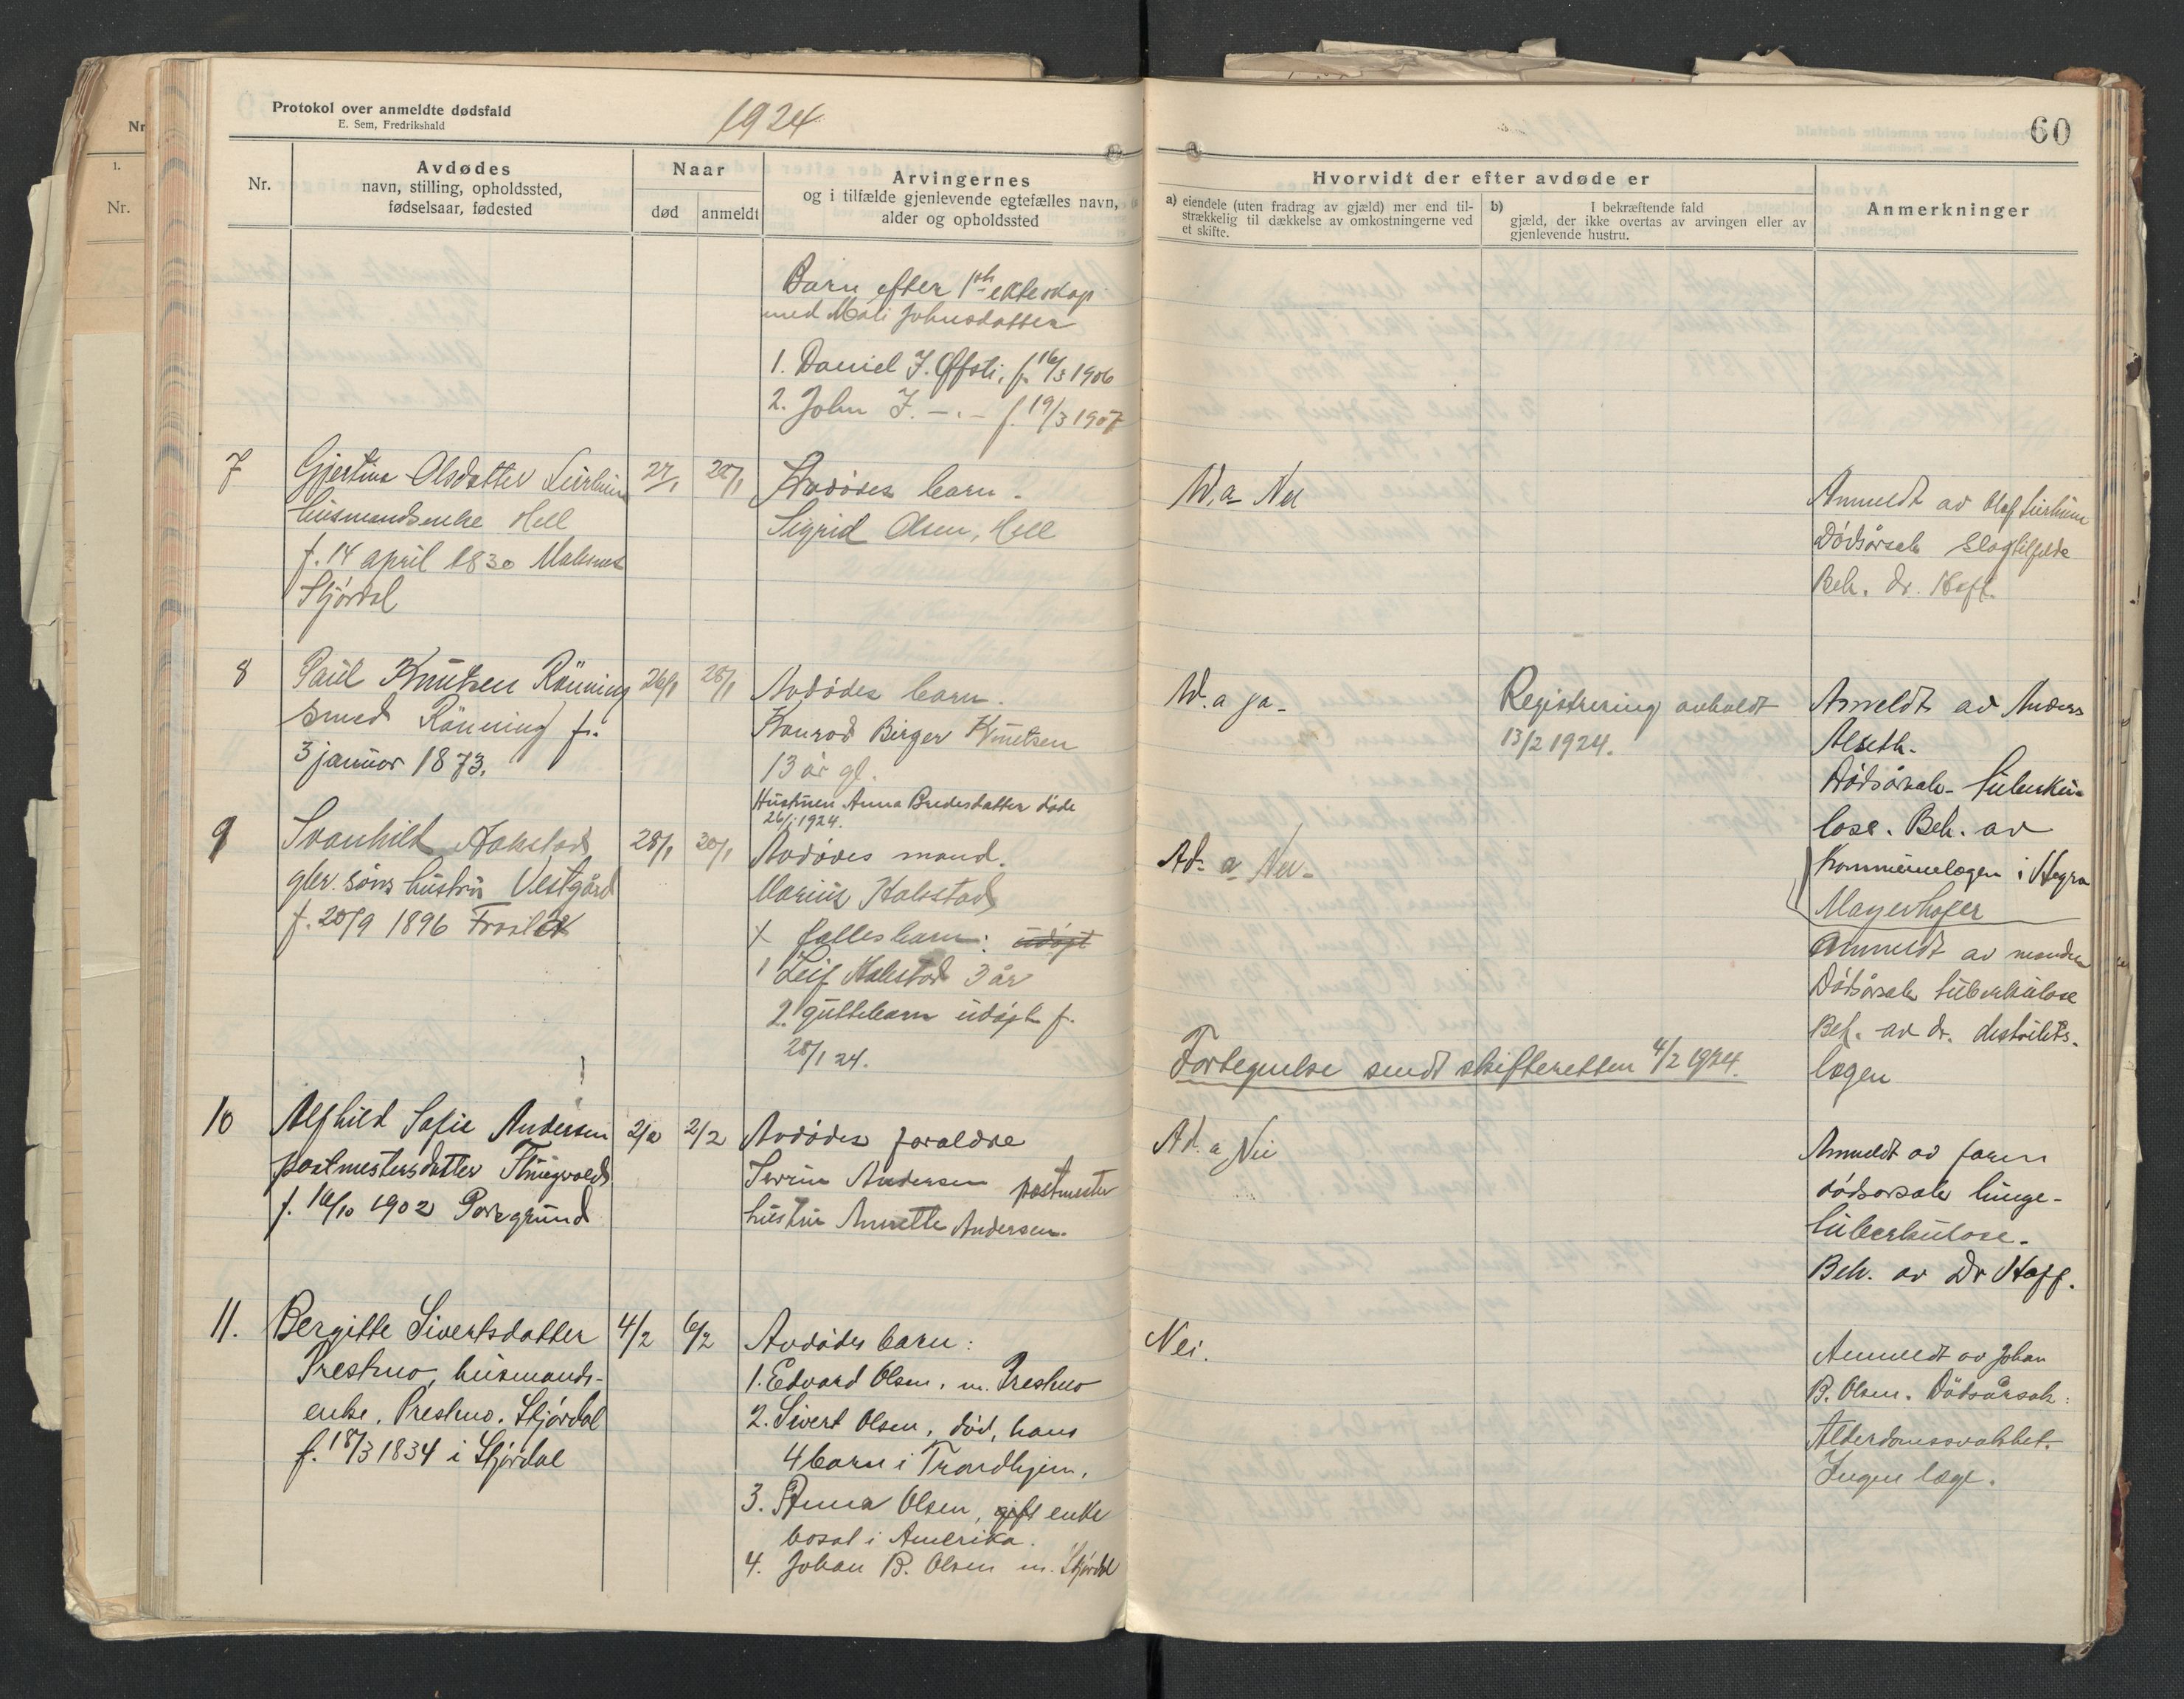 Protokol over anmeldte dødsfald
E. Sem, Fredrikshald
1924
60
Nr.
Avdødes
navn, stilling, opholdssted,
fødselsaar, fødested
Naar
død
anmeldt
Arvingernes
og i tilfælde gjenlevende egtefælles navn,
alder og opholdssted
Hvorvidt der efter avdøde er
a) eiendele (uten fradrag av gjæld) mer end til-
strækkelig til dækkelse av omkostningerne ved
et skifte.
b) I bekræftende fald
gjæld, der ikke overtas av arvingen eller av
gjenlevende hustru.
Anmerkninger
Barn efter 1ste ekteskap
med Mali Johnsdatter
1. Daniel J. Øfsti, f. 16/3 1906
2. John J. -.- f. 19/3 1907
7
Gjertina Olsdatter
husmandsenke Hell
f. 14 april 1830
Stjørdal
27/1
28/1
Avdødes barn.
Sigrid Olsen, Hell
Ad. a Nei
Anmeldt av Olaf
Dødsårsak slagtilfelde
Beh. dr. Hoff.
8
Paul Knutsen Rönning
smed Rönning f.
3 januar 1873.
26/1
28/1
Avdødes barn.
Konrad Birger Knutsen
13 år gl.
Hustruen Anna Bredesdatter døde
26/1 1924.
Ad. a ja-
Registrering avholdt
13/2 1924.
Anmeldt av Anders
Alseth.
Dødsårsak- tuberku-
lose. Beh. av
Kommunelægen i Hegra
Mayerhofer
9
Svanhild Hakstad
gbr. søns hustru Vestgård
f. 20/9 1896
28/1
30/1
Avdødes mand.
Marius Hakstad
X fælles barn: udøpt
1 Leif Hakstad 3 år
2. guttebarn udøpt f.
28/1 24.
Ad. a Nei-
Fortegnelse sendt skifteretten 4/2 1924.
Anmeldt av manden
Dødsårsak tuberkulose
Beh. av dr. distrikts-
lægen
10
Alfhild Sofie Andersen
postmestersdatter
f. 16/10 1902 Porsgrund
2/2
2/2
Avdødes forældre
Andersen postmester
hustru Annette Andersen.
Ad. a Nei
Anmeldt av faren
dødsorsak lunge-
tuberkulose.
Beh. av Dr Hoff.
11.
Bergitte Sivertsdatter
Prestmo, husmands-
enke. Prestmo. Stjørdal
f. 18/3 1834 i Stjørdal
4/2
6/2
Avdødes barn:
1. Edvard Olsen, m. Prestmo
2. Sivert Olsen, død, hans
4 barn i Trondhjem.
3. Anna Olsen, gift enke
bosat i Amerika.
4. Johan B. Olsen m. Stjørdal
Nei.
Anmeldt av Johan
B. Olsen. Dødsårsak:
Alderdomssvakhet.
Ingen læge.